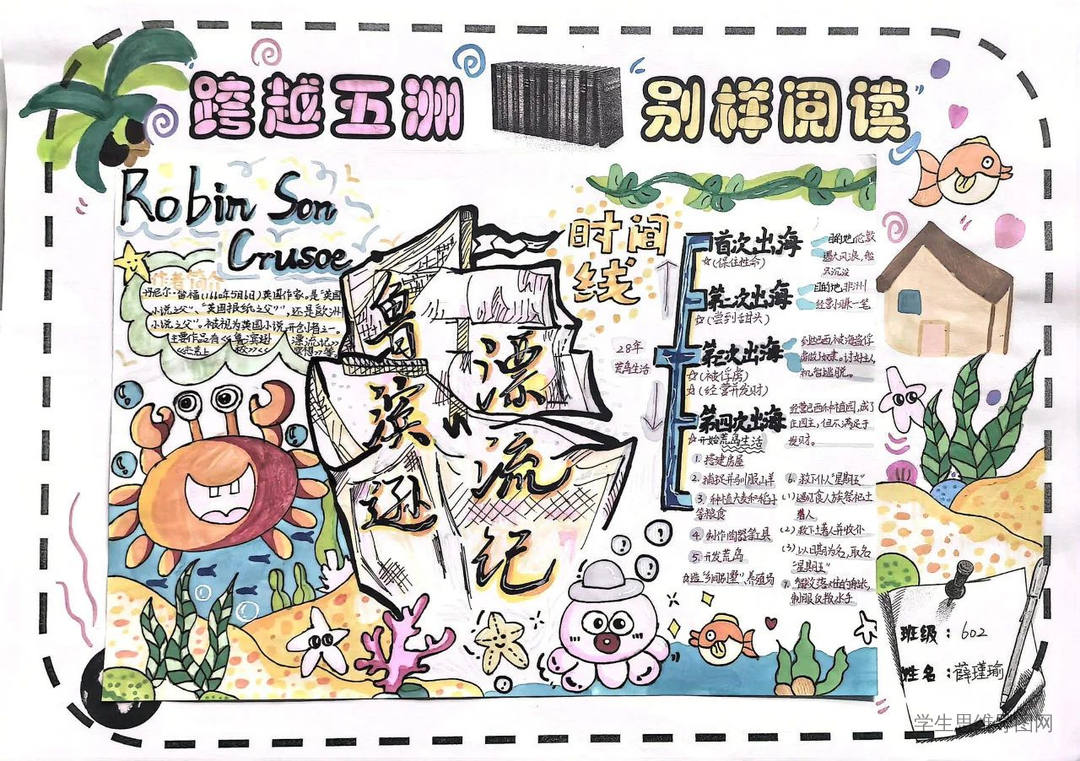 跨越五洲 别样阅读
Robin Son
Crusoe
作者简介
丹尼尔·笛福(1660年5月6日)英国作家。是"英国
小说之父"、"英国报纸之父",还是欧洲
小说之父"。被视为英国小说开创者之一。
主要作品有《鲁滨逊
漂流记》
鲁滨逊
漂流记
时间
线
28年
荒岛生活
首次出海
☆(保住性命)
目的地伦敦
遇大风浪,船
只沉没
第二次出海
☆(尝到甜头)
目的地非洲
经营小赚一笔
第三次出海
☆(被俘虏)
☆(经营开发财)
第四次出海
☆开始荒岛生活
经营巴西种植园,成了
庄园主,但不满足于
发财。
1. 搭建房屋
2. 捕捉并驯服山羊
3. 种植大麦和稻子
等粮食
4. 制作陶器等工具
5. 开发荒岛
建造"乡间别墅"、养殖场
6. 救下仆人"星期五"
(1) 遇食人族祭祀土
著人
(2) 救下土著人并收仆
(3) 以日期为名,取名
"星期五"
班级:602
姓名:薛瑾瑜
学生思维导图网